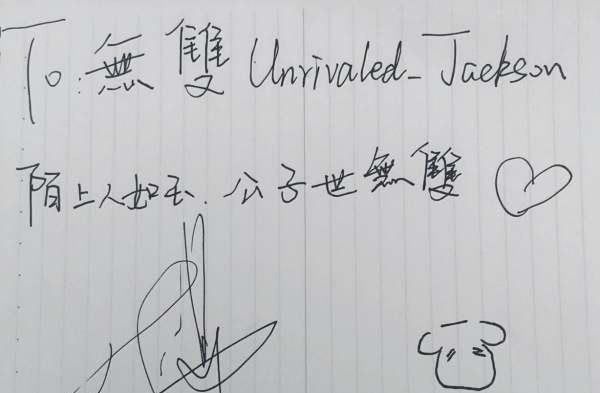 To:無雙 Unrivaled_Jackson
陌上人如玉.公子世無雙